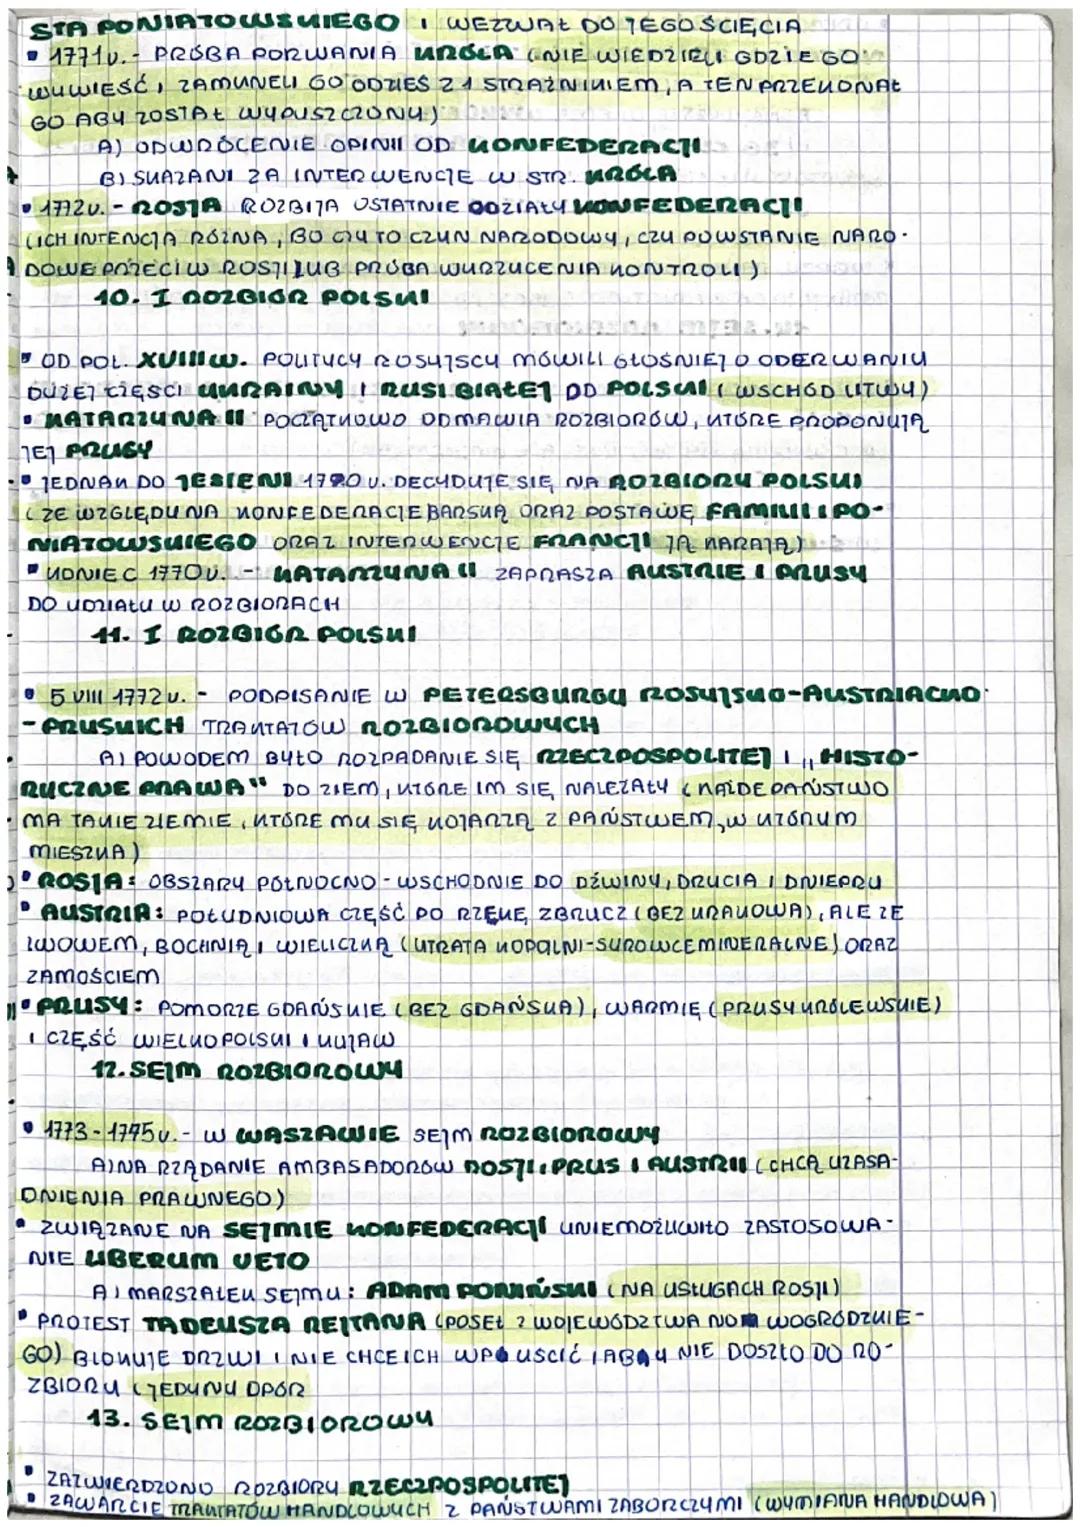 STA PONIATOWSKIEGO I WEZWAŁ DO JEGO ŚCIĘCIA
• 1771r. - PRÓBA PORWANIA KRÓLA (NIE WIEDZIELI GDZIE GO
WYWIEŚĆ, ZAMKNELI GO GDZIEŚ Z 1 STRAŻNIKIEM, A TEN PRZEKONAŁ
GO ABY ZOSTAŁ WYPUSZCZONY)
A) ODWRÓCENIE OPINII OD KONFEDERACJI
B) SKAZANI ZA INTERWENCJE W STR. KRÓLA
• 1772r. - ROSJA ROZBIJA OSTATNIE ODZIAŁY KONFEDERACJI
(ICH INTENCJA RÓŻNA, BO CZY TO CZYN NARODOWY, CZY POWSTANIE NARO-
DOWE PRZECIW ROSJI LUB PRÓBA WYRZUCENIA KONTROLI)
10. I ROZBIÓR POLSKI
• OD POŁ. XVIII W. POLITYCY ROSYJSCY MÓWILI GŁOŚNIEJ O ODERWANIU
DUŻEJ CZĘŚCI UKRAINY I RUSI BIAŁEJ OD POLSKI (WSCHÓD LITWY)
• KATARZYNA II POCZĄTKOWO ODMAWIA ROZBIORÓW, KTÓRE PROPONUJĄ
JEJ PRUSY
• JEDNAK DO JESIENI 1770r. DECYDUJE SIĘ NA ROZBIORY POLSKI
(ZE WZGLĘDU NA KONFEDERACJE BARSKĄ ORAZ POSTAWĘ FAMILII I PO-
NIATOWSKIEGO ORAZ INTERWENCJE FRANCJI JĄ KARAJĄ)
• KONIEC 1770r. - KATARZYNA II ZAPRASZA AUSTRIE I PRUSY
DO UDZIAŁU W ROZBIORACH
11. I ROZBIÓR POLSKI
• 5 VIII 1772r. - PODPISANIE W PETERSBURGU ROSYJSKO-AUSTRIACKO-
-PRUSKICH TRAKTATÓW ROZBIOROWYCH
A) POWODEM BYŁO ROZPADANIE SIĘ RZECZPOSPOLITEJ I „HISTO-
RYCZNE PRAWA" DO ZIEM, KTÓRE IM SIĘ NALEŻAŁY (KAŻDE PAŃSTWO
MA TAKIE ZIEMIE, KTÓRE MU SIĘ KOJARZĄ Z PAŃSTWEM, W KTÓRYM
MIESZKA)
• ROSJA: OBSZARY PÓŁNOCNO-WSCHODNIE DO DŹWINY, DRUCIA I DNIEPRU
• AUSTRIA: POŁUDNIOWA CZĘŚĆ PO RZEKĘ ZBRUCZ (BEZ KRAKOWA), ALE ZE
LWOWEM, BOCHNIĄ I WIELICZKĄ (UTRATA KOPALNI-SUROWCE MINERALNE) ORAZ
ZAMOŚCIEM
• PRUSY: POMORZE GDAŃSKIE (BEZ GDAŃSKA), WARMIĘ (PRUSY KRÓLEWSKIE)
I CZĘŚĆ WIELKOPOLSKI I KUJAW
12. SEJM ROZBIOROWY
• 1773-1775r. - W WASZAWIE SEJM ROZBIOROWY
A) NA RZĄDANIE AMBASADORÓW ROSJI, PRUS I AUSTRII (CHCĄ UZASA-
DNIENIA PRAWNEGO)
• ZWIĄZANE NA SEJMIE KONFEDERACJI UNIEMOŻLIWIŁO ZASTOSOWA-
NIE LIBERUM VETO
A) MARSZAŁEK SEJMU: ADAM PONIŃSKI (NA USŁUGACH ROSJI)
• PROTEST TADEUSZA REJTANA (POSEŁ Z WOJEWÓDZTWA NOWOGRÓDZKIE-
GO) BLOKUJE DRZWI I NIE CHCE ICH WPUŚCIĆ, ABY NIE DOSZŁO DO RO-
ZBIORU (JEDYNY OPÓR
13. SEJM ROZBIOROWY
• ZATWIERDZONO ROZBIORY RZECZPOSPOLITEJ
• ZAWARCIE TRAKTATÓW HANDLOWYCH Z PAŃSTWAMI ZABORCZYMI (WYMIANA HANDLOWA)